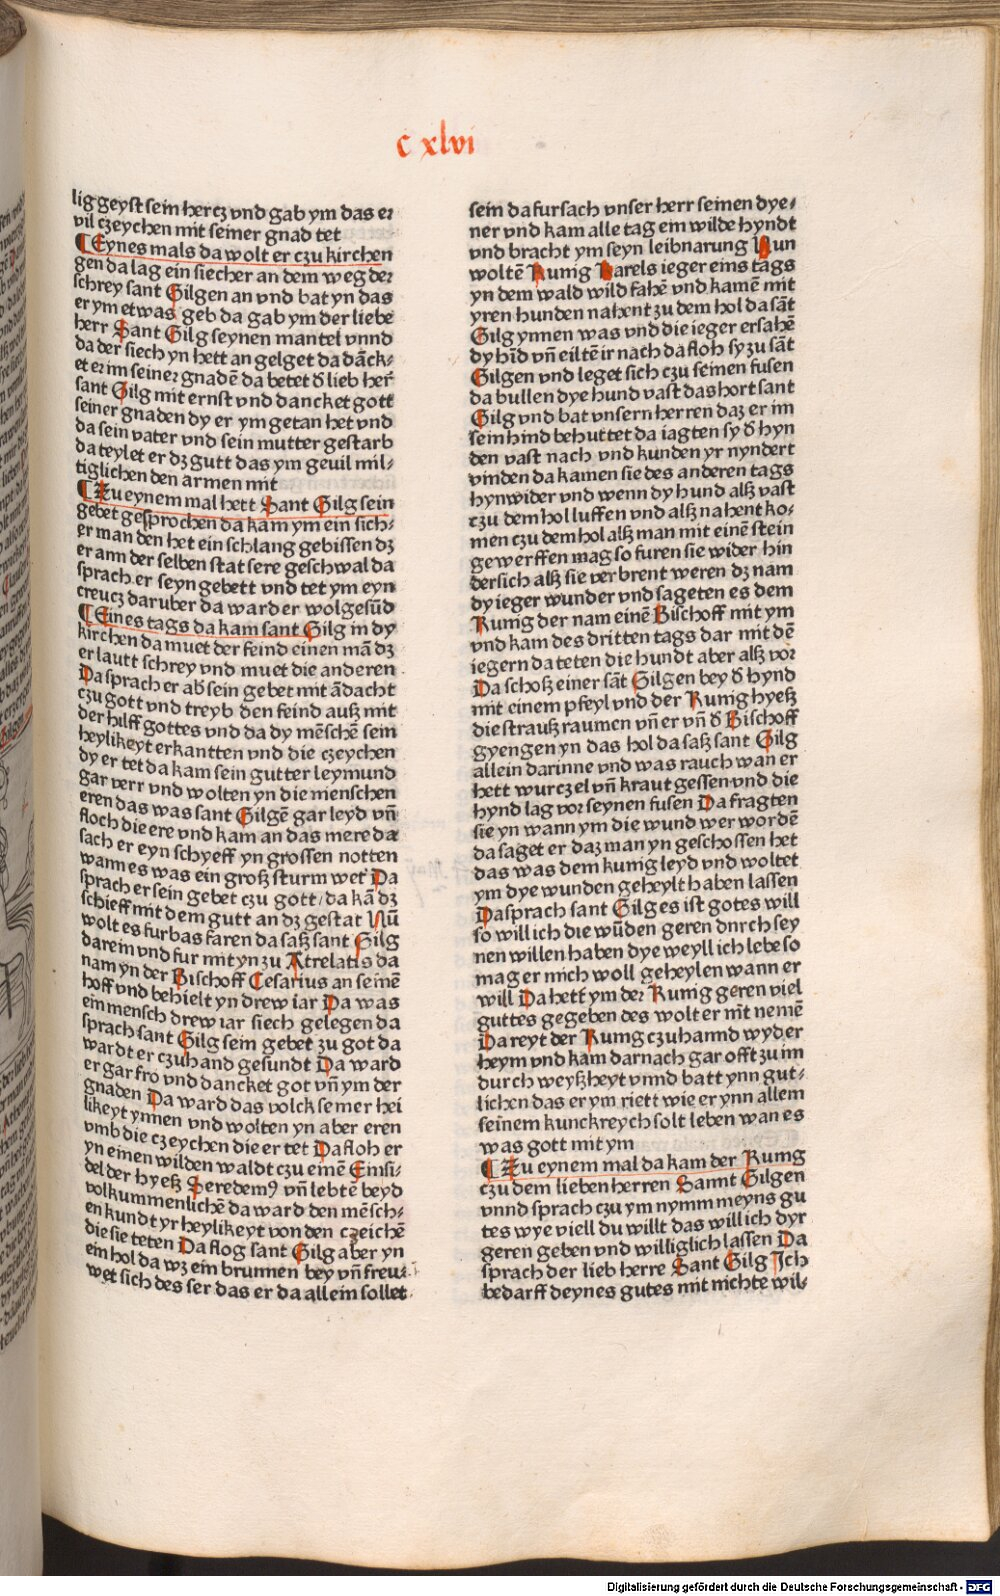 C xlvi
lig geyst sein hercz vnd gab ym das er
vil czeychen mit seiner gnad tet
¶ Eynes mals da wolt er czu kirchen
gen da lag ein siecher an dem weg der
schrey sant Gilgen an vnd bat yn das
er ym etwas geb da gab ym der liebe
herr Sant Gilg seynen mantel vnnd
da der siech yn hett an gelget da dāck⸗
et er im seiner gnadē da betet d̄ lieb her̄
sant Gilg mit ernst vnd dancket gott
seiner gnaden dy er ym getan het vnd
da sein vater vnd sein mutter gestarb
da teylet er dz gutt das ym geuil mil⸗
tiglichen den armen mit
¶ Zu eynem mal hett Sant Gilg sein
gebet gesprochen da kam ym ein sich⸗
er man den het ein schlang gebissen dz
er ann der selben stat sere geschwal da
sprach er seyn gebett vnd tet ym eyn
creucz daruber da ward er wolgesūd
¶ Eines tags da kam sant Gilg in dy
kirchen da muet der feind einen mā dz
er lautt schrey vnd muet die anderen
Da sprach er ab̄ sein gebet mit ādacht
czu gott vnd treyb den feind auß mit
der hilff gottes vnd da dy mēschē sein
heylikeyt erkantten vnd die czeychen
dy er tet da kam sein gutter leymund
gar verr vnd wolten yn die menschen
eren das was sant Gilgē gar leyd vn̄
floch die ere vnd kam an das mere da
sach er eyn schyeff yn grossen notten
wann es was ein groß sturm wet̄ Da
sprach er sein gebet czu gott / da kā dz
schieff mit dem gutt an dz gestat Nū
wolt es furbas faren da saß sant Gilg
darein vnd fur mit yn zu Atrelatis da
nam yn der Bischoff Cesarius an seinē
hoff vnd behielt yn drew iar Da was
ein mensch drew iar siech gelegen da
sprach sant Gilg sein gebet zu got da
wardt er czuhand gesundt Da ward
er gar fro vnd dancket got vn̄ ym der
gnaden Da ward das volck seiner hei
likeyt ynnen vnd wolten yn aber eren
vmb die czeychen die er tet Da floh er
yn einen wilden waldt czu einē Einsi⸗
del der hyeß Seredemꝰ vn̄ lebtē beyd
volkummenlichē da ward den mēsch⸗
en kundt yr heylikeyt von den czeichē
die sie teten Da flog sant Gilg aber yn
ein hol da wz ein brunnen bey vn̄ freu⸗
wet sich des ser das er da allein sollet
sein da fur sach vnser herr seinen dye⸗
ner vnd kam alle tag ein wilde hyndt
vnd bracht ym seyn leibnarung Nun
woltē Kunig Karels ieger eins tags
yn dem wald wild fahē vnd kamē mit
yren hunden nahent zu dem hol da sāt
Gilg ynnen was vnd die ieger ersahē
dy hīd vn̄ eiltē ir nach da floh sy zu sāt
Gilgen vnd leget sich czu seinen fusen
da bullen dye hund vast das hort sant
Gilg vnd bat vnsern herren daz er im
sein hind behuttet da iagten sy d̄ hyn
den vast nach vnd kunden yr nyndert
vinden da kamen sie des anderen tags
hyn wider vnd wenn dy hund alß vast
czu dem hol luffen vnd alß nahent ko⸗
men czu dem hol alß man mit einē stein
gewerffen mag so furen sie wider hin
dersich alß sie verbrent weren dz nam
dy ieger wunder vnd sageten es dem
Kunig der nam einē Bischoff mit ym
vnd kam des dritten tags dar mit dē
iegern da teten die hundt aber alß vor
Da schosz einer sāt Gilgen bey d̄ hynd
mit einem pfeyl vnd der Kunig hyeß
die strauß raumen vn̄ er vn̄ d̄ Bischoff
gyengen yn das hol da saß sant Gilg
allein darinne vnd was rauch wan er
hett wurczel vn̄ kraut gessen vnd die
hynd lag vor seynen fusen Da fragten
sie yn wann ym die wund wer wordē
da saget er daz man yn geschossen het
das was dem kunig leyd vnd woltet
ym dye wunden geheylt haben lassen
Da sprach sant Gilg es ist gotes will
so will ich die wūden geren durch sey
nen willen haben dye weyl ich lebe so
mag er mich woll geheylen wann er
will Da hett ym der Kunig geren viel
guttes gegeben des wolt er nit nemē
Da reyt der Kunig czuhannd wyder
heym vnd kam darnach gar offt zu im
durch weyßheyt vnnd batt ynn gut⸗
lichen das er ym riett wie er ynn allem
seinem kunckreych solt leben wan es
was gott mit ym
¶ Zu eynem mal da kam der Kunig
czu dem lieben herren Sannt Gilgen
vnnd sprach czu ym nymm meyns gu
tes wye viell du willt das will ich dyr
geren geben vnd williglich lassen Da
sprach der lieb herre Sant Gilg Ich
bedarff deynes gutes mit nichte wil⸗
Digitalisierung gefördert durch die Deutsche Forschungsgemeinschaft - DFG